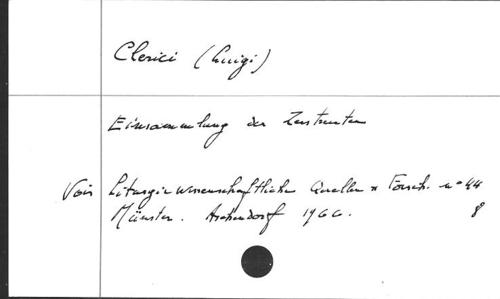 Clerici (Luigi)
Einsammlung der Zerstreuten
Voir Liturgiewissenschaftliche Quellen u Forsch. n° 44
Münster. Aschendorf 1966. 8